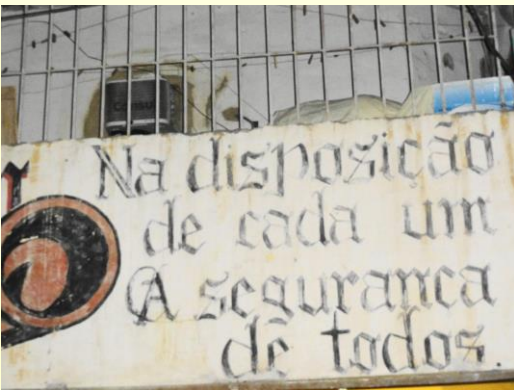 Consul
Na disposição
de cada um
A seguranca
de todos.